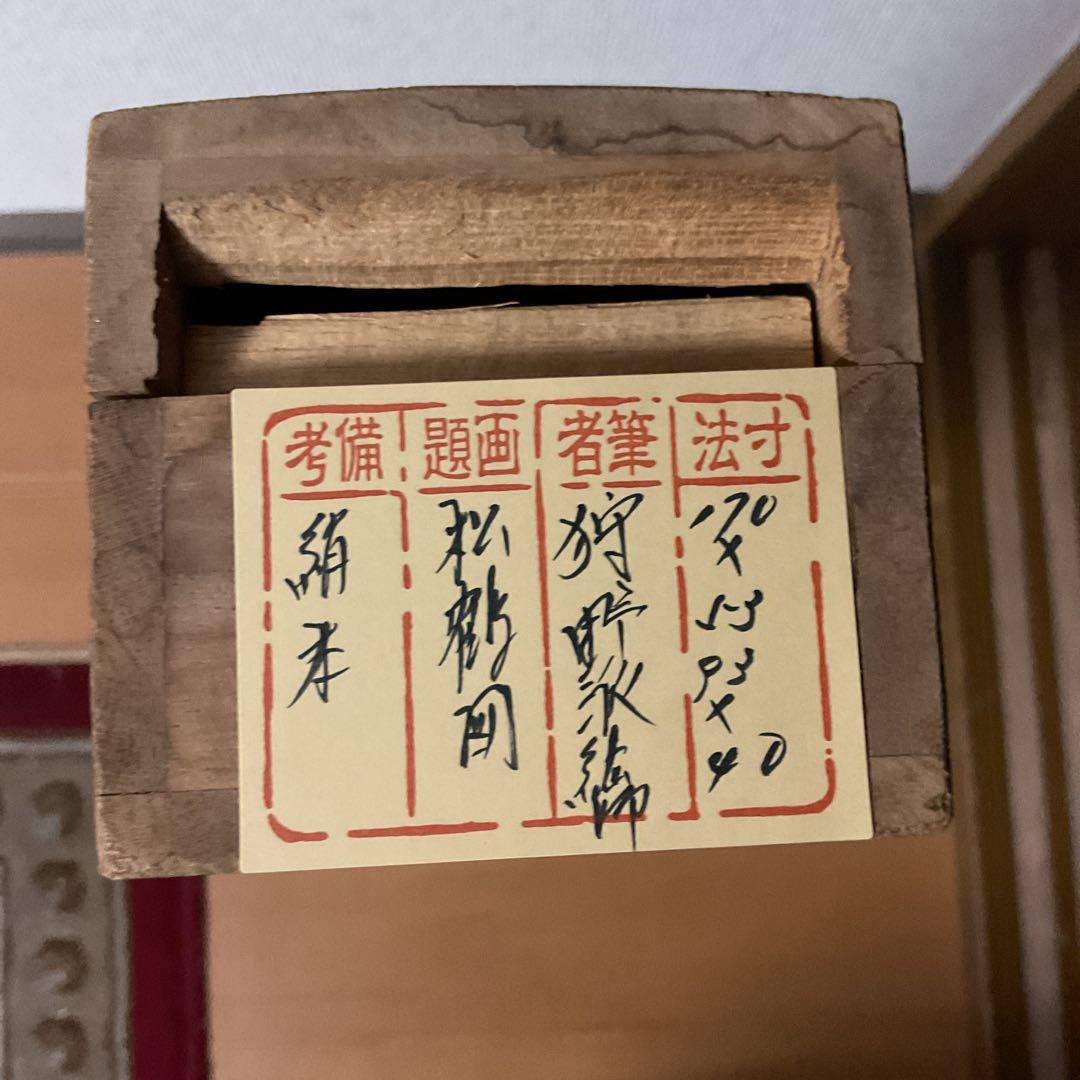 寸法
170
×
53
93
×
40
筆者
狩野永
画題
松鶴図
備考
絹本